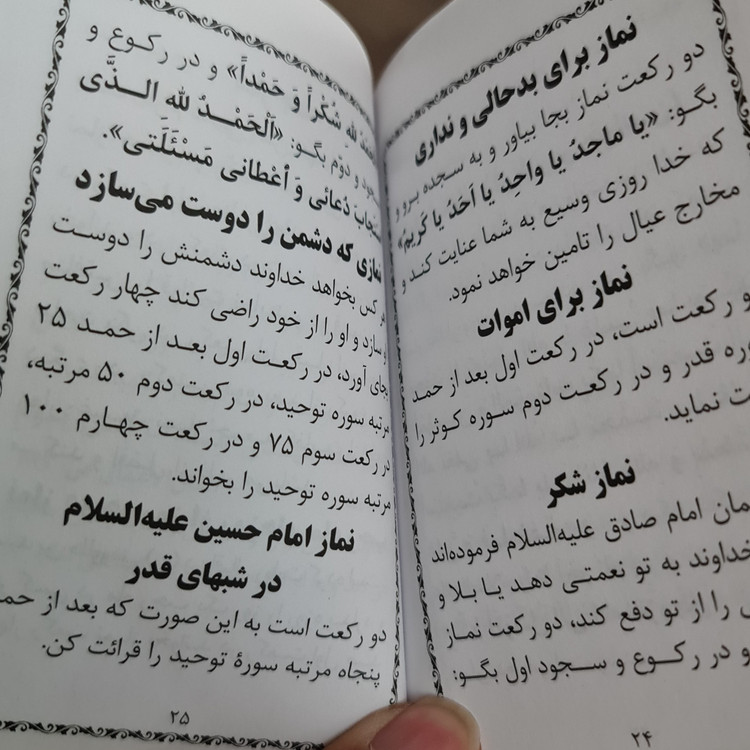 نماز برای بدحالی و نداری
دو رکعت نماز بجا بیاور و به سجده برو و
بگو: «یا ماجِدُ یا واحِدُ یا اَحَدُ یا کَریمُ»
که خدا روزی وسیع به شما عنایت کند و
مخارج عیال را تامین خواهد نمود.
نماز برای اموات
دو رکعت است، در رکعت اول بعد از حمد
قدر و در رکعت دوم سوره کوثر را
نماید.
نماز شکر
امام صادق علیه‌السلام فرموده‌اند
خداوند به تو نعمتی دهد یا بلا و
را از تو دفع کند، دو رکعت نماز
و در رکوع و سجود اول بگو:
۲۴
لله شُکْراً وَ حَمْداً» و در رکوع و
دوّم بگو: «اَلْحَمْدُ لله الَّذی
دُعائی وَ أعْطانی مَسْئَلَتی».
نمازی که دشمن را دوست می‌سازد
هر کس بخواهد خداوند دشمنش را دوست
سازد و او را از خود راضی کند چهار رکعت
بجای آورد، در رکعت اول بعد از حمد ۲۵
مرتبه سوره توحید، در رکعت دوم ۵۰ مرتبه،
در رکعت سوم ۷۵ و در رکعت چهارم ۱۰۰
مرتبه سوره توحید را بخواند.
نماز امام حسین علیه‌السلام
در شبهای قدر
دو رکعت است به این صورت که بعد از حمد
پنجاه مرتبه سورهٔ توحید را قرائت کن.
۲۵